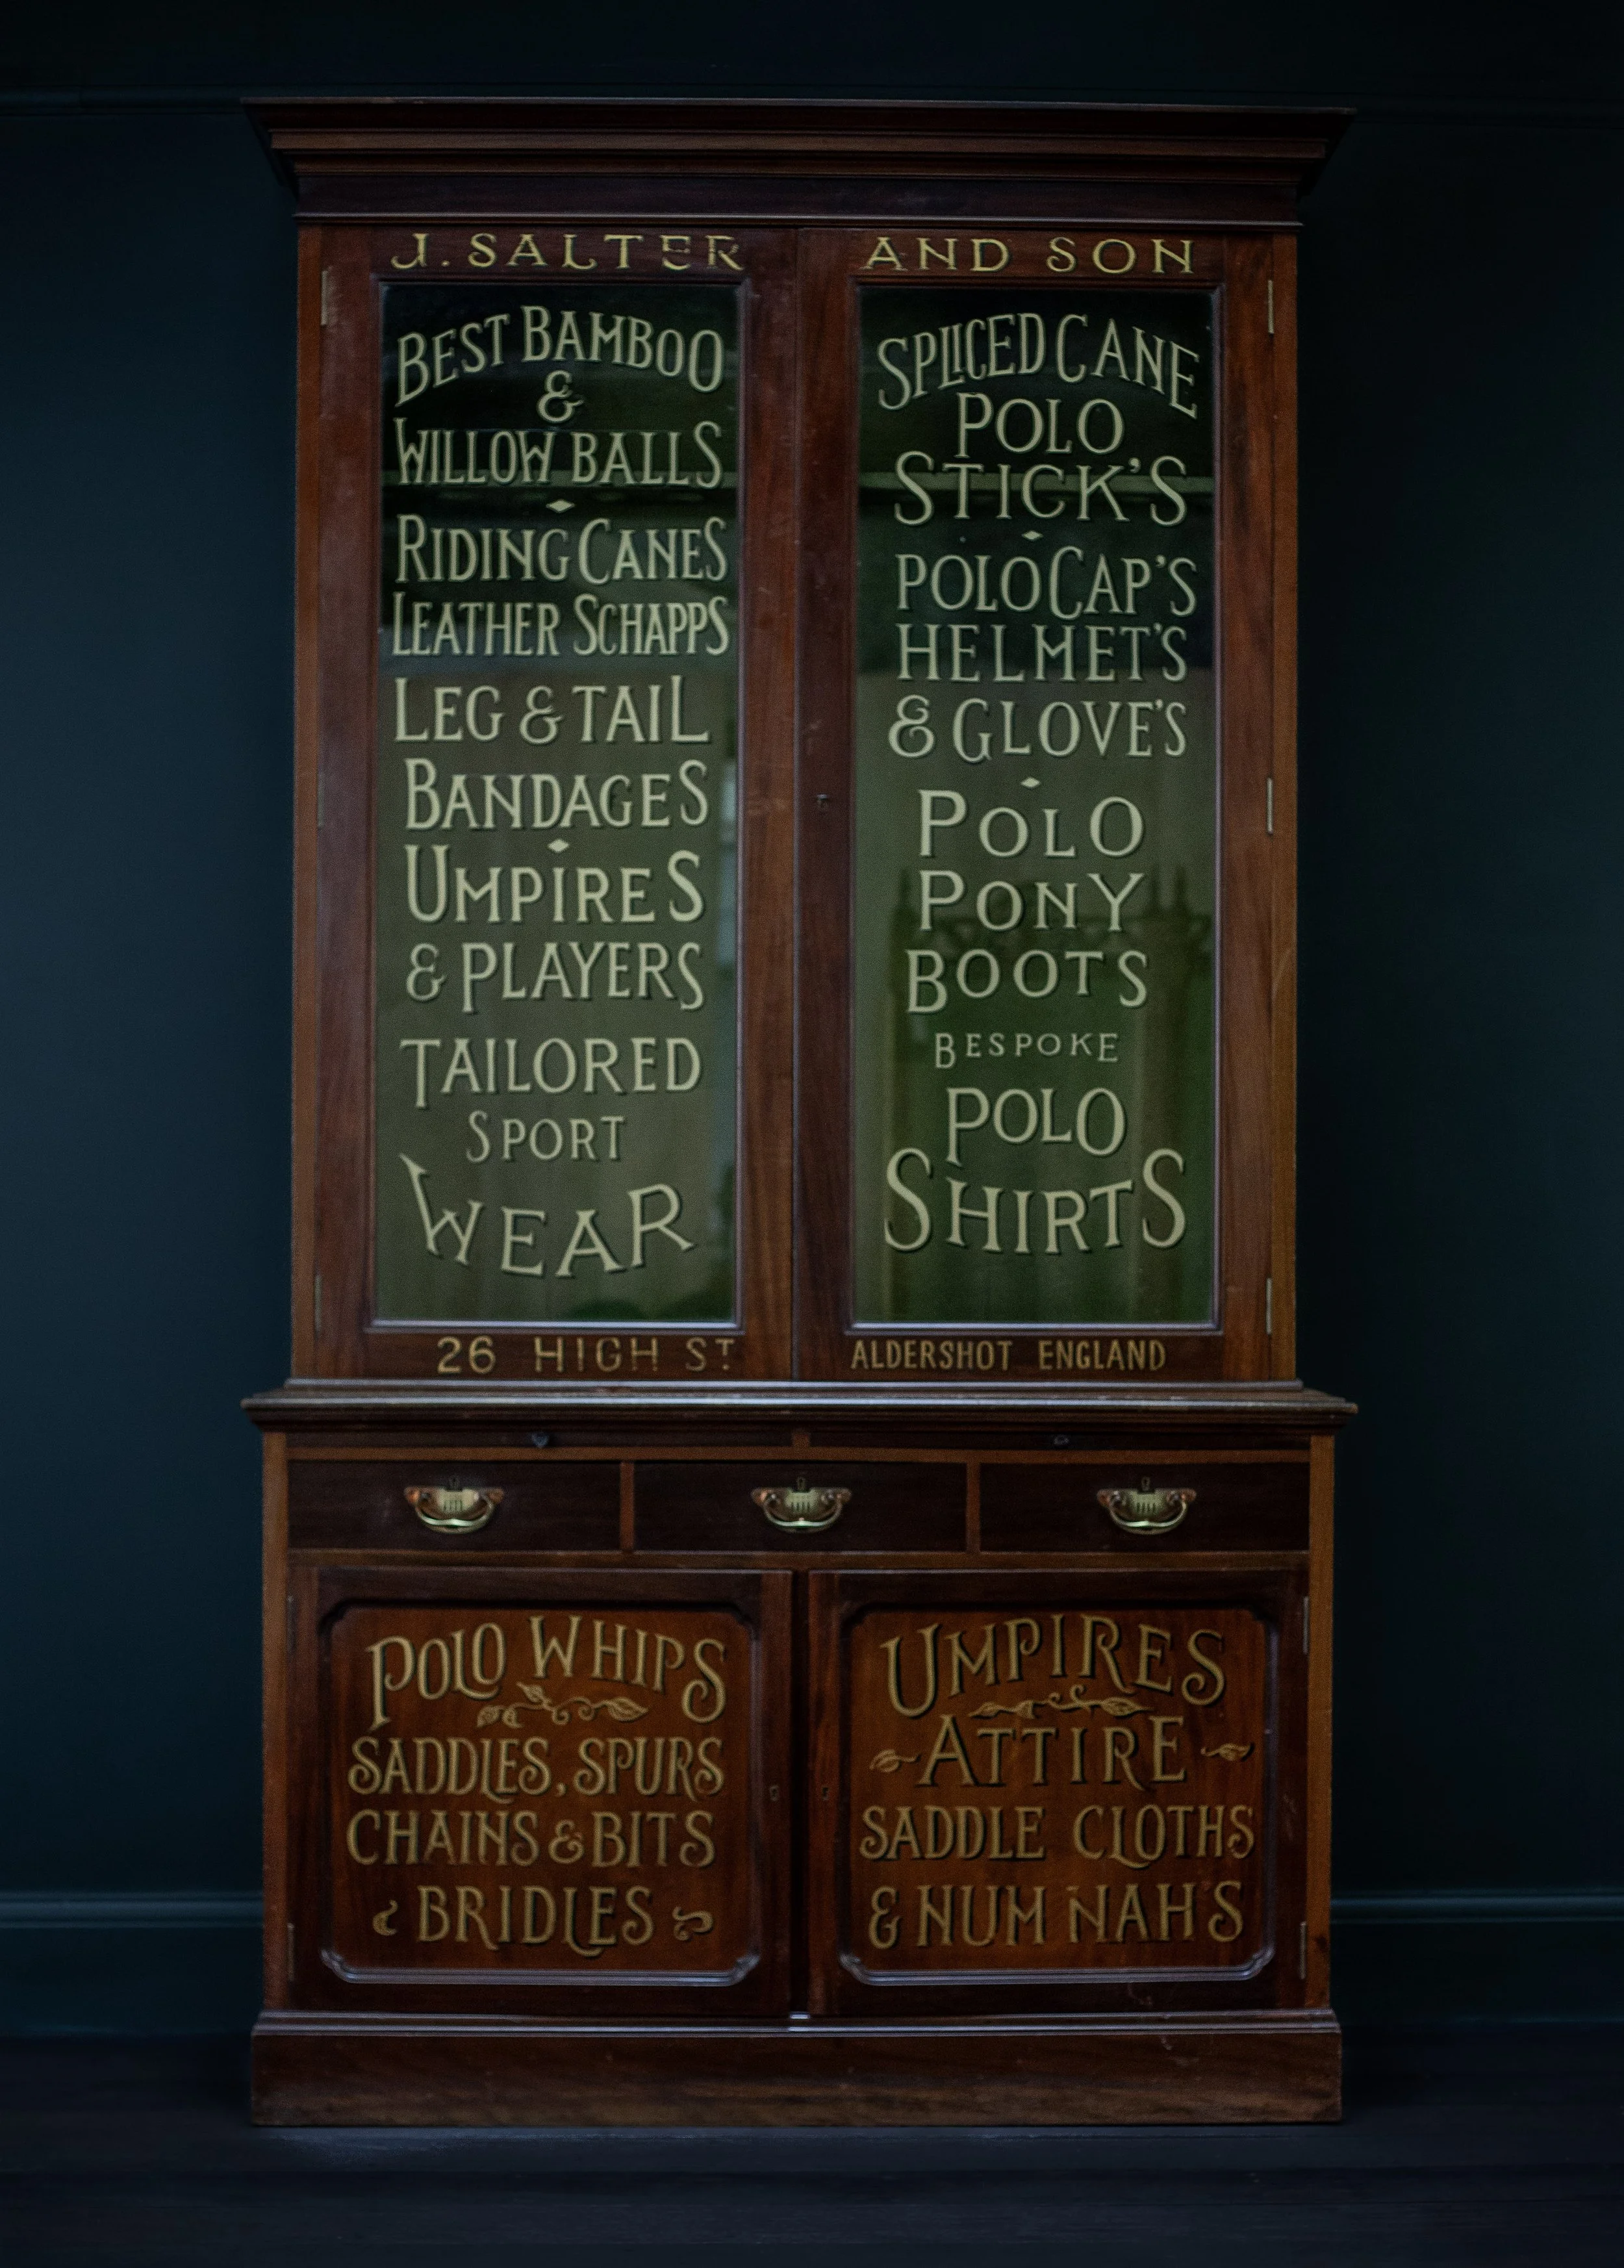 J. SALTER AND SON
BEST BAMBOO
&
WILLOW BALLS
RIDING CANES
LEATHER SCHAPPS
LEG & TAIL
BANDAGES
UMPIRES
& PLAYERS
TAILORED
SPORT
WEAR
SPLICED CANE
POLO
STICK'S
POLO CAP'S
HELMET'S
& GLOVE'S
POLO
PONY
BOOTS
BESPOKE
POLO
SHIRTS
26 HIGH ST ALDERSHOT ENGLAND
POLO WHIPS
SADDLES, SPURS
CHAINS & BITS
BRIDLES
UMPIRES
ATTIRE
SADDLE CLOTHS
& NUM NAH'S